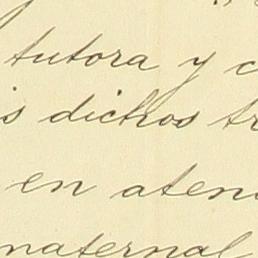 tutora y c
s dichos tr
en aten
maternal